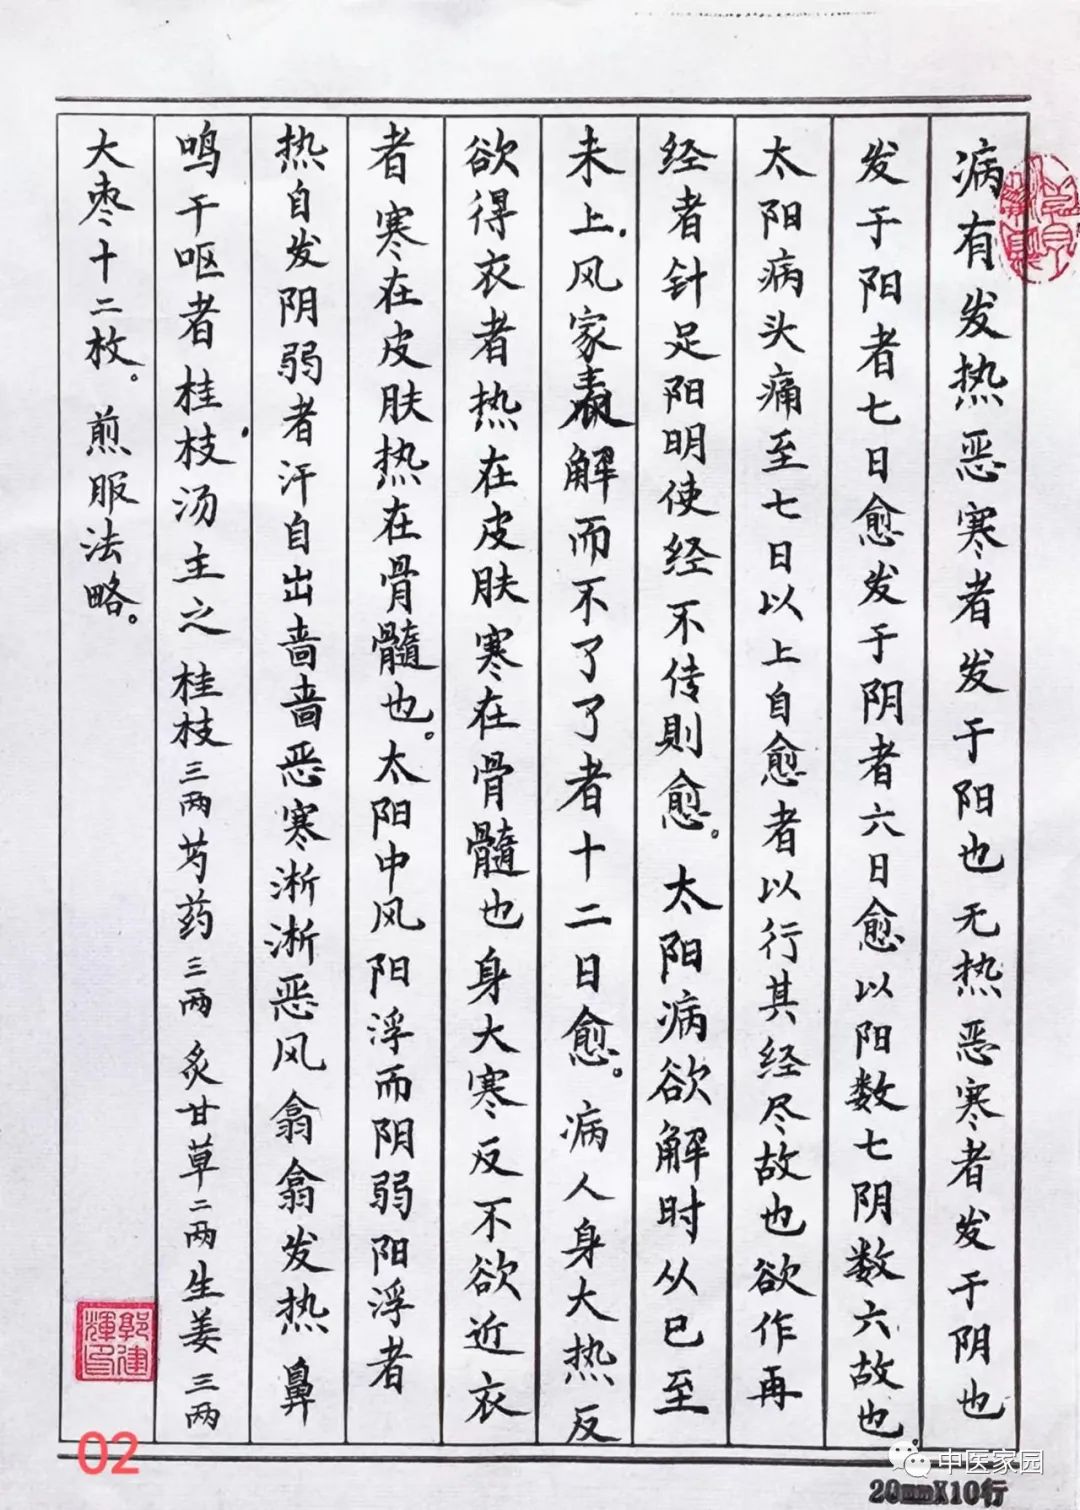 病有发热恶寒者发于阳也无热恶寒者发于阴也
发于阳者七日愈发于阴者六日愈以阳数七阴数六故也。
太阳病头痛至七日以上自愈者以行其经尽故也欲作再
经者针足阳明使经不传则愈。太阳病欲解时从巳至
未上.风家表解而不了了者十二日愈。病人身大热反
欲得衣者热在皮肤寒在骨髓也身大寒反不欲近衣
者寒在皮肤热在骨髓也。太阳中风阳浮而阴弱阳浮者
热自发阴弱者汗自出啬啬恶寒淅淅恶风翕翕发热鼻
鸣干呕者桂枝汤主之桂枝三两芍药三两炙甘草二两生姜三两
大枣十二枚。煎服法略。
郭建辉印
02
中医家园
20mmX10行